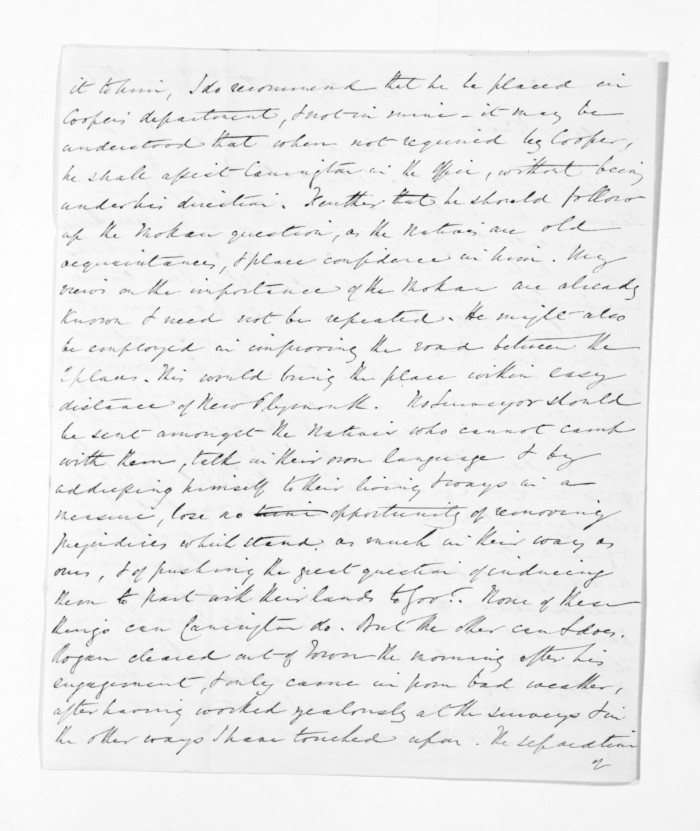 it to him, I do recommend that he be placed in
Cooper's department, & not in mine - it may be
understood that when not required by Cooper,
he shall assist Carrington in the office, without being
under his direction. Further that he should follow
up the Mokau question, as the Natives are old
acquaintances, & place confidence in him. My
views on the importance of the Mokau are already
known & need not be repeated. He might also
be employed in improving the road between the
2 places. This would bring the place within easy
distance of New Plymouth. No Surveyor should
be sent amongst the Natives who cannot camp
with them, talk in their own language & by
addressing himself to their living & ways in a
measure, lose no time opportunity of removing
prejudices which stand as much in their way as
ours, & of pushing the great question of inducing
them to part with their lands to Govt. None of these
things can Carrington do. But the other can & does.
Rogan cleared out of Town the morning after his
engagement, & only came in from bad weather,
after having worked zealously at the surveys & in
the other ways I have touched upon. The separation
of